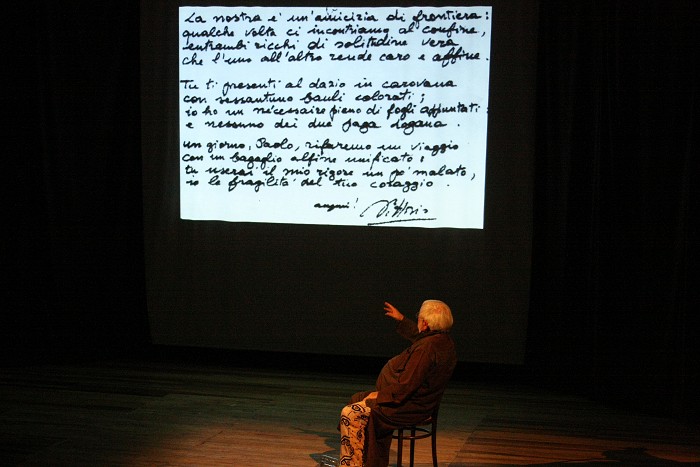 La nostra e' un'amicizia di frontiera:
qualche volta ci incontriamo al confine,
entrambi ricchi di solitudine vera
che l'uno all'altro rende caro e affine.
Tu ti presenti al dazio in carovana
con sessantuno bauli colorati;
io ho un nécessaire pieno di fogli appuntati:
e nessuno dei due paga dogana.
un giorno, Paolo, rifaremo un viaggio
con un bagaglio alfine unificato:
tu userai il mio rigore un po' malato,
io le fragilità del tuo coraggio.
auguri! Vittorio